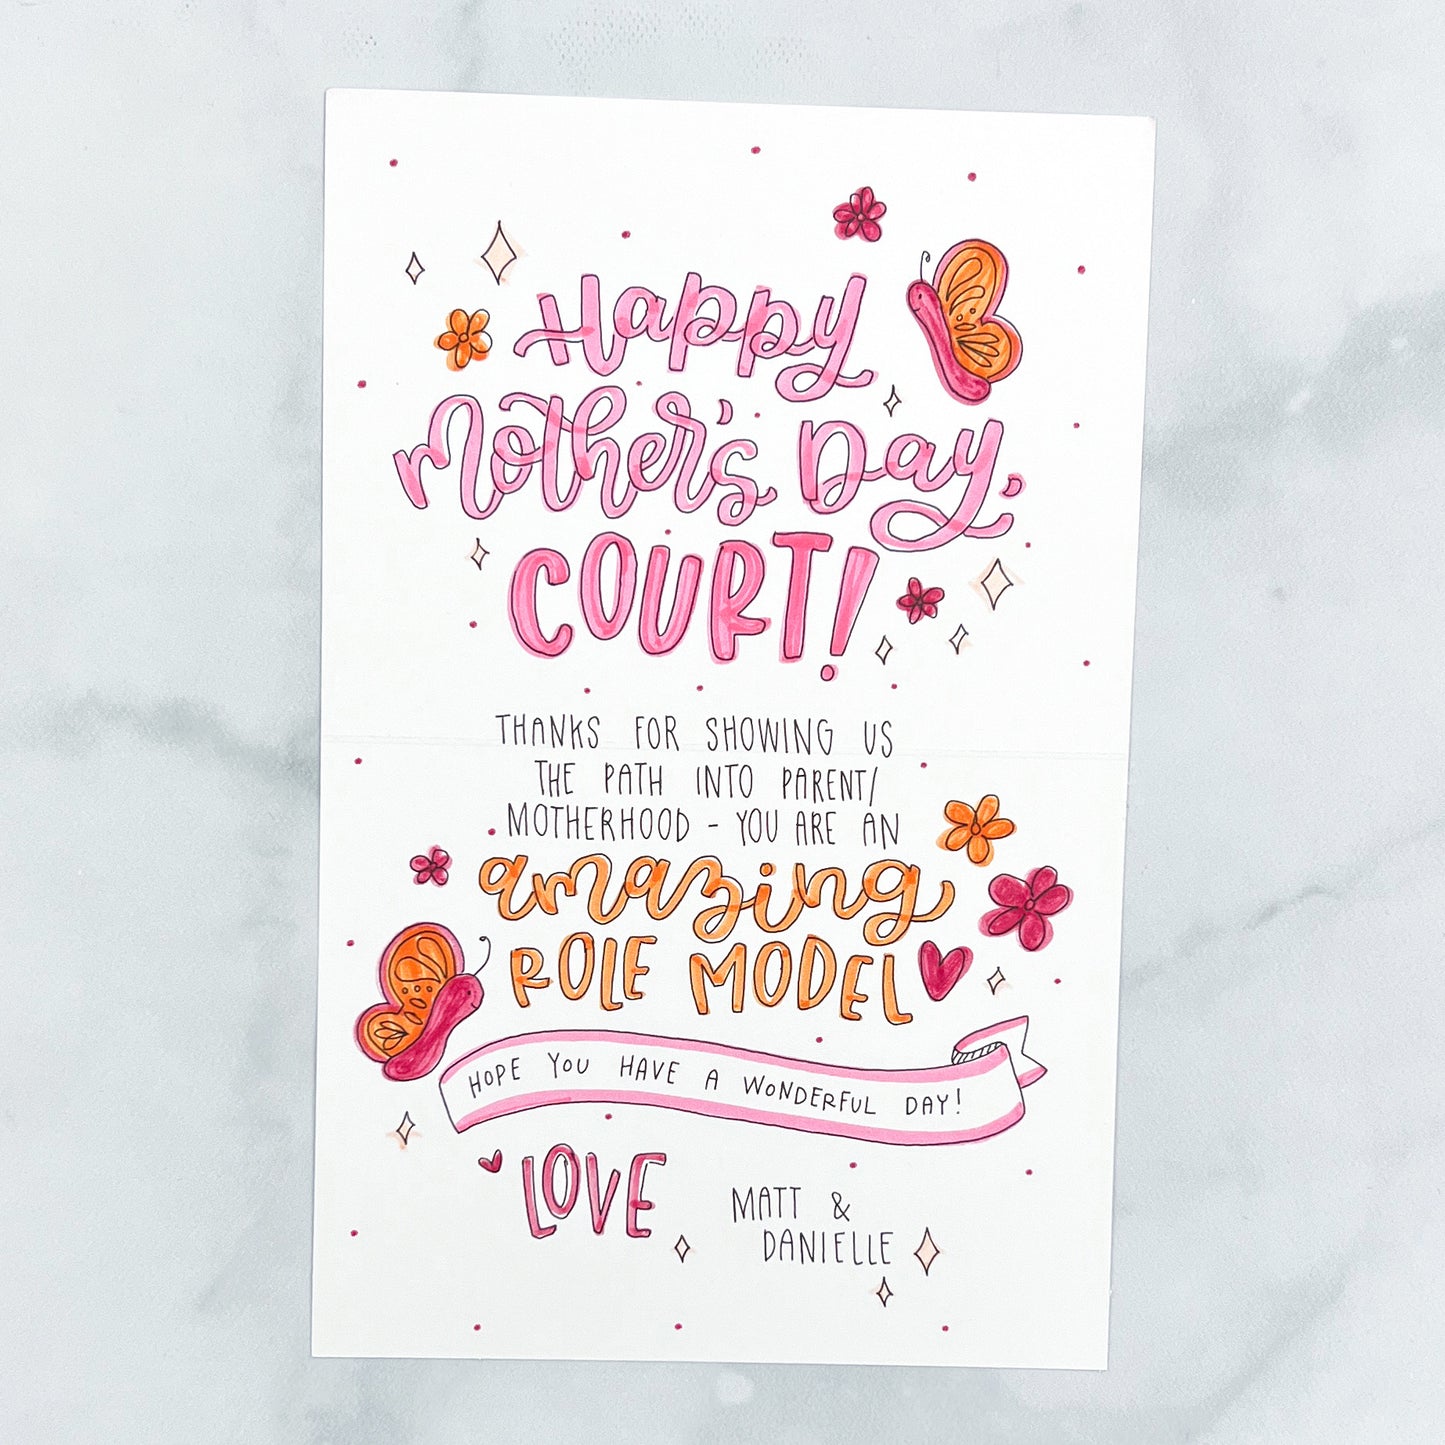 Happy
Mother's Day,
COURT!
THANKS FOR SHOWING US
THE PATH INTO PARENT/
MOTHERHOOD - YOU ARE AN
amazing
ROLE MODEL
HOPE YOU HAVE A WONDERFUL DAY!
LOVE
MATT &
DANIELLE